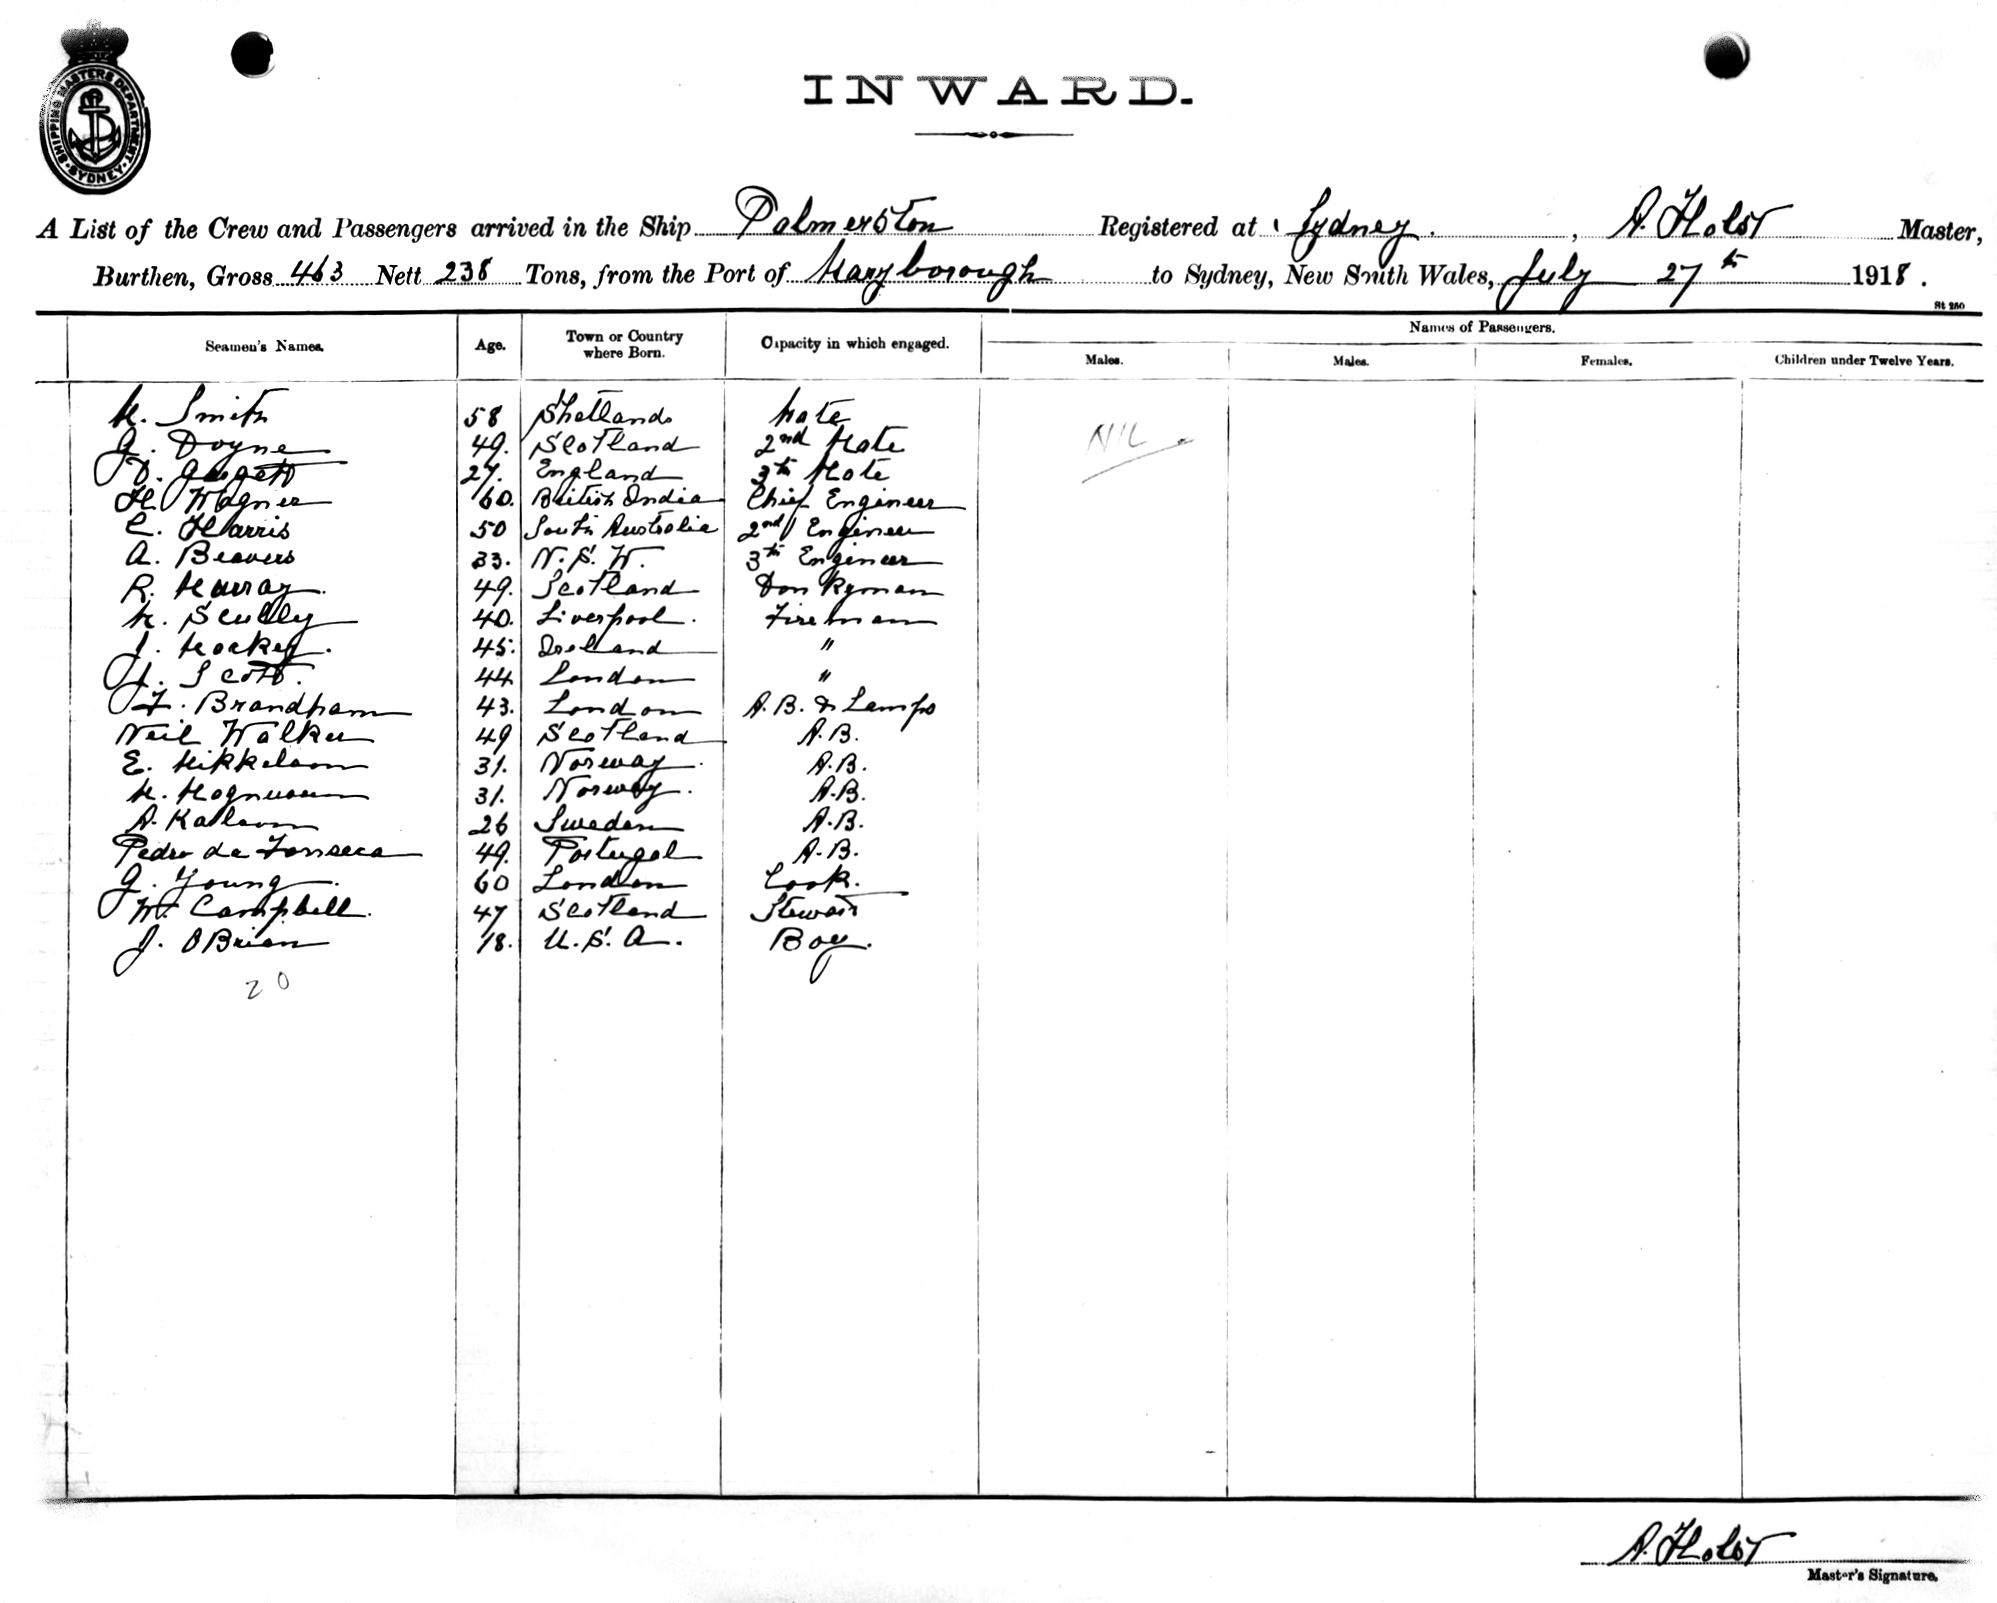 SHIPPING MASTERS DEPARTMENT SYDNEY
INWARD.
A List of the Crew and Passengers arrived in the Ship Palmerston Registered at Sydney. , A. Holst Master,
Burthen, Gross 463 Nett 238 Tons, from the Port of Maryborough to Sydney, New South Wales, July 27th 1918.
St 250
Names of Passengers.
Seamen's Names. Age. Town or Country where Born. Capacity in which engaged. Males. Males. Females. Children under Twelve Years.
M. Smith 58 Shetlands Mate NIL.
G. Doyne 49. Scotland 2nd Mate
D. 27. England 3th Mate
H. Wagner 60. British India Chief Engineer
C. Harris 50 South Australia 2nd Engineer
A. Beavers 33. N.S.W. 3th Engineer
R. Murray. 49. Scotland Donkyman
M. Scully 40. Liverpool. Fireman
J. Mockey. 45. Ireland "
J. Scott. 44 London "
F. Brandham 43. London A.B. & Lamps
Neil Walker 49 Scotland A.B.
E. Mikkelson 31. Norway. A.B.
M. 31. Norway. A.B.
A. Karlson 26 Sweden A.B.
Pedro da Fonseca 49. Portugal A.B.
G. Young. 60 London Cook.
W. Campbell. 47 Scotland Stewart
J. OBrien 18. U.S.A. Boy.
20
A. Holst
Master's Signature.